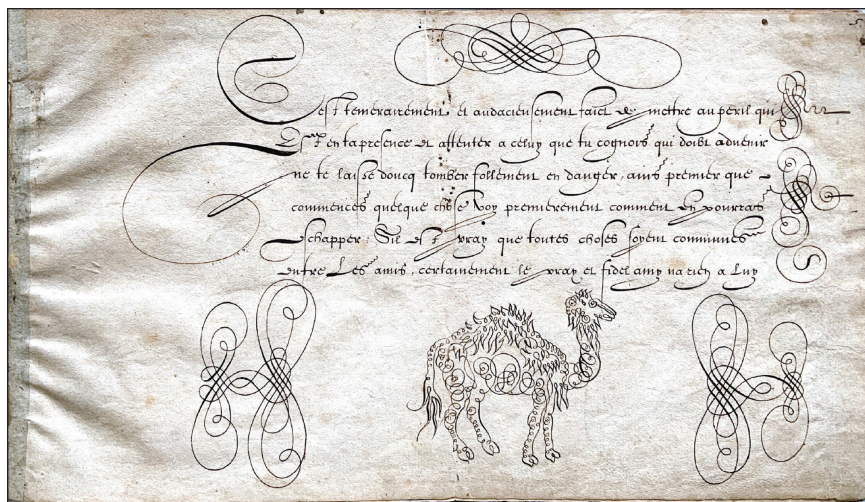 C'est temerairement et audacieusement faict de mettre au peril qui
Est en ta presence et attenter a celuy que tu cognois qui doibt advenir
ne te laisse doncq tomber follement en danger, ains premier que
commences quelque chose voy premierement comment en pourras
eschapper. Sil est vray que toutes choses soyent communes
entre Les amis, certainement le vray et fidel amy na rien a Luy